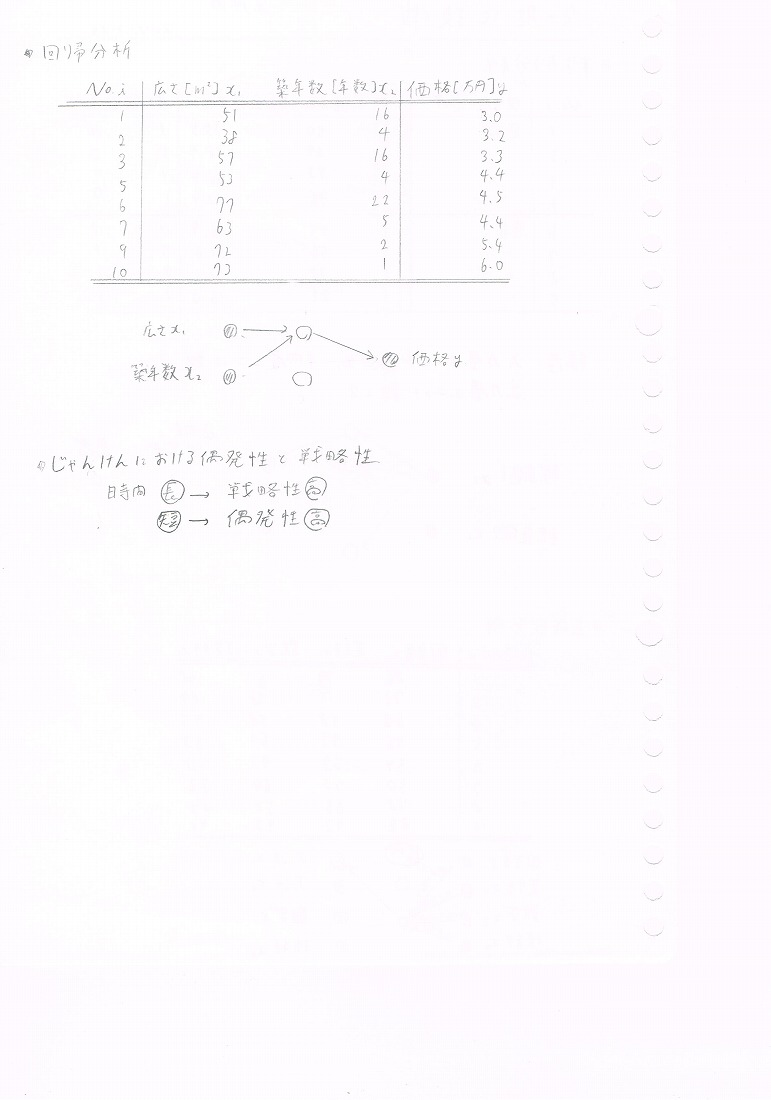 回帰分析
No. i 広さ[m²] x₁ 築年数[年数] x₂ 価格[万円] y
1 51 16 3.0
2 38 4 3.2
3 57 16 3.3
5 53 4 4.4
6 77 22 4.5
7 63 5 4.4
9 72 2 5.4
10 73 1 6.0
広さ x₁
価格 y
築年数 x₂
じゃんけんにおける偶発性と戦略性
時間 長 → 戦略性 高
短 → 偶発性 高